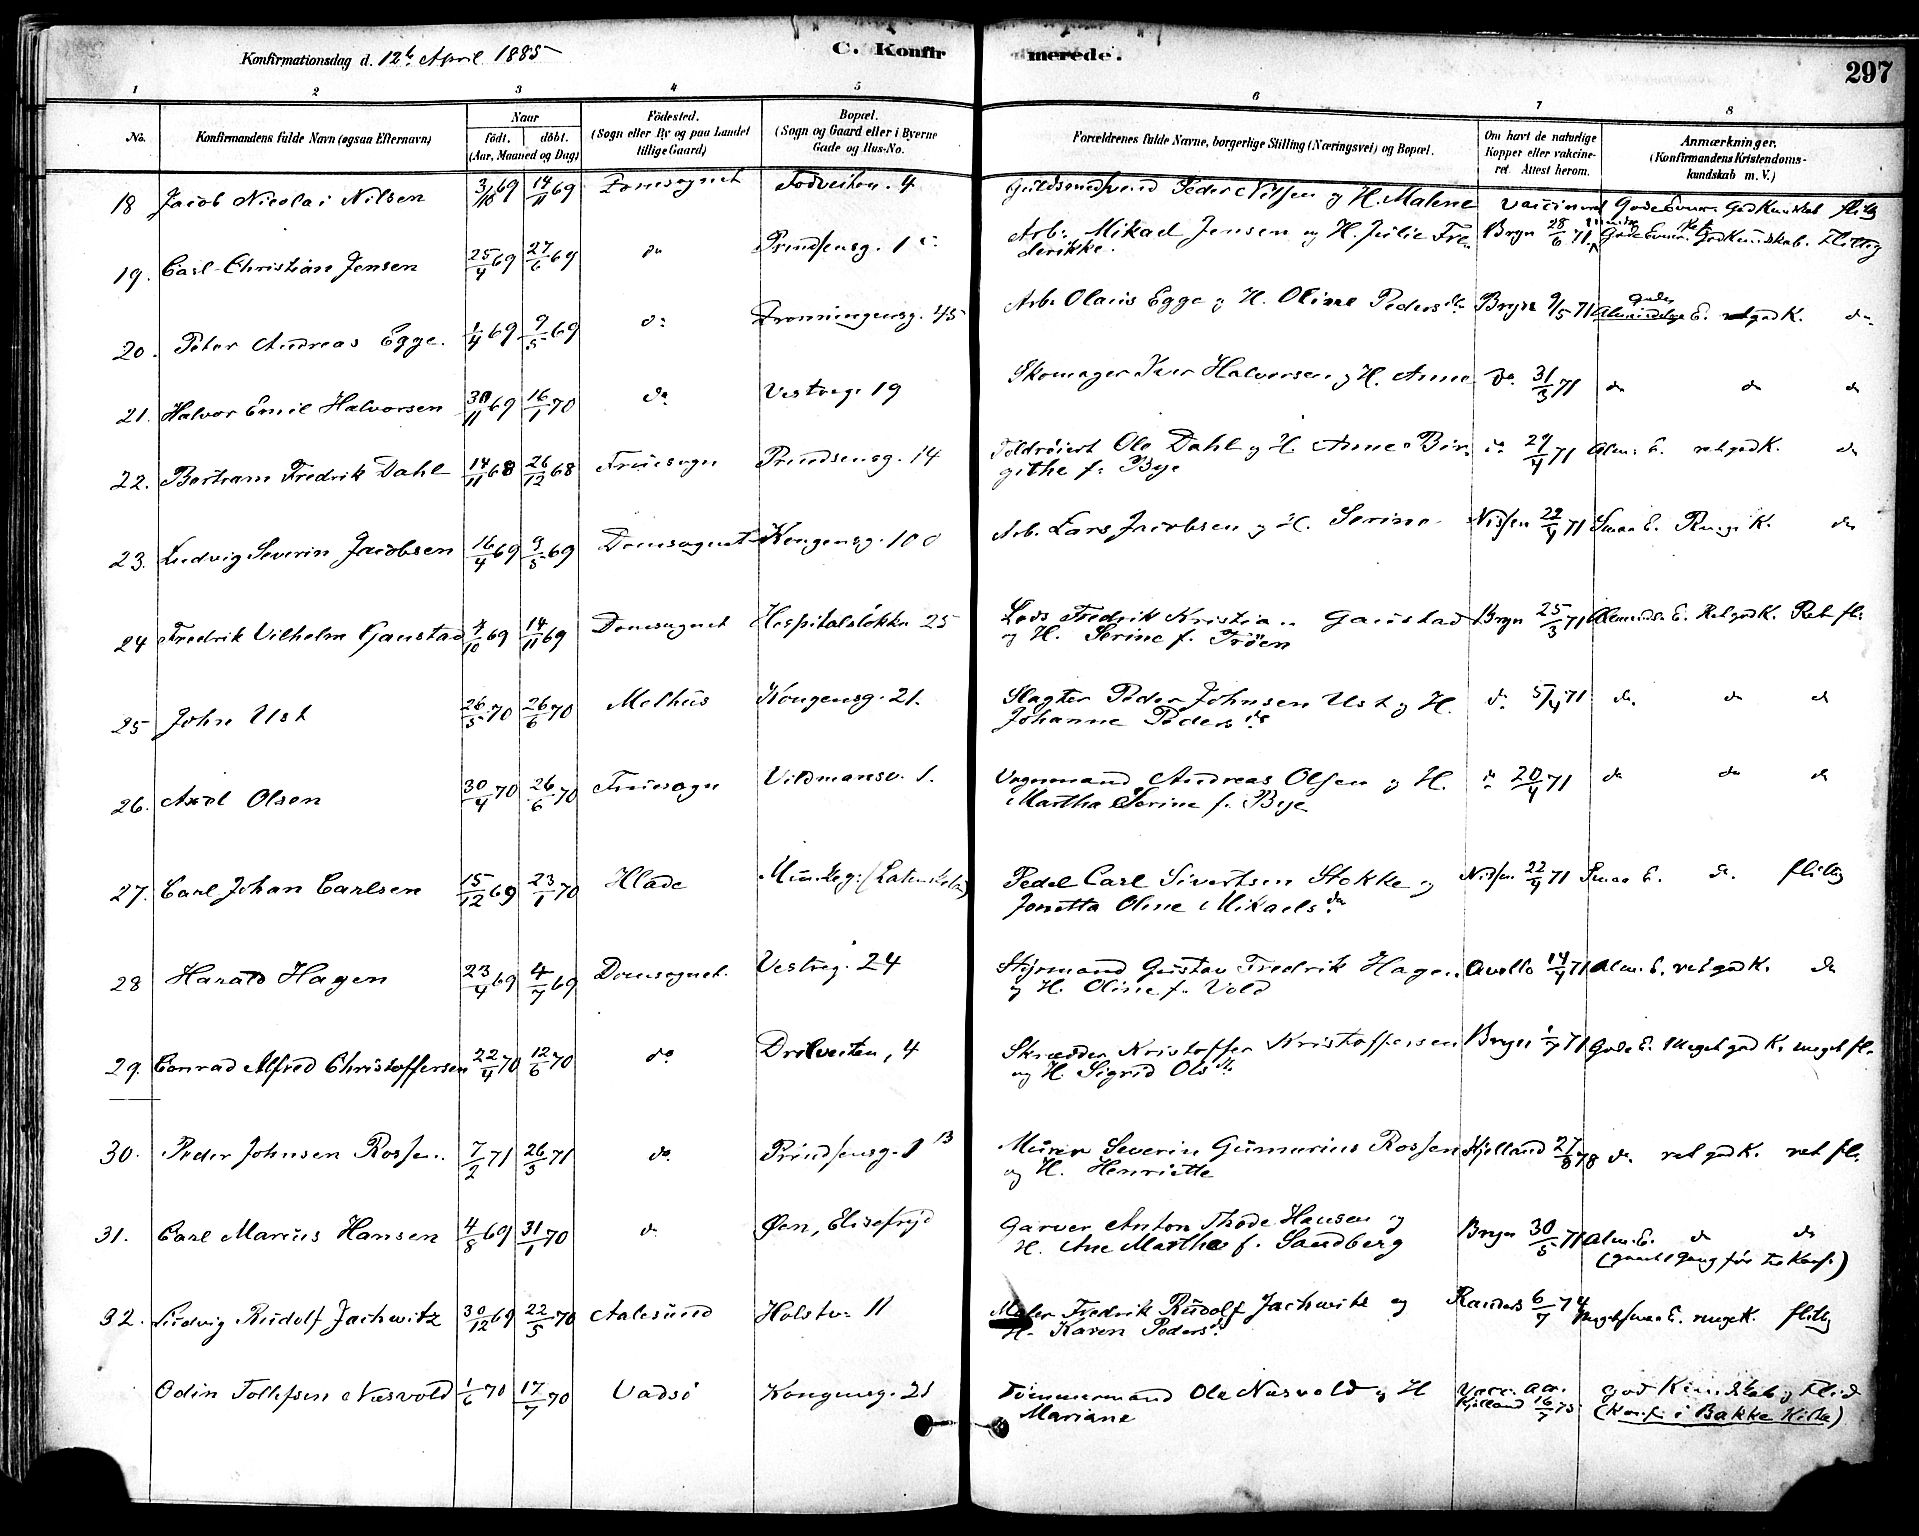 Konfirmationsdag d. 12te April 1885
C. Konfirmerede.
297
1 2 3 4 5 6 7 8
No. Konfirmandens fulde Navn (ogsaa Efternavn) Naar födt. döbt. (Aar, Maaned og Dag) Födested. (Sogn eller By og paa Landet tillige Gaard) Bopæl. (Sogn og Gaard eller i Byerne Gade og Hus-No. Forældrenes fulde Navne, borgerlige Stilling (Næringsvei) og Bopæl. Om havt de naturlige Kopper eller vakcineret. Attest herom. Anmærkninger. (Konfirmandens Kristendomskundskab m. V.)
18 Jacob Nicolai Nilsen 3/10 69 14/11 69 Domsognet Todveiten. 4 Guldsmedsvend Peder Nilsen og H. Malene
19. Carl Christian Jensen 25/4 69 27/6 69 do Prindsensg. 1 Arb. Mikael Jensen og H. Julie Frederikke. Bryn 28/6 71 Gode Evner. God Kundskab. Flittig
20. Peter Andreas Egge. 1/4 69 9/5 69 do Dronningensg. 45 Arb. Olaus Egge og H. Oline Pedersdr Bryn 9/5 71 E. ret god K. do
21. Halvor Emil Halvorsen 30/11 69 16/1 70 do Vestreg. 19 Skomager Iver Halvorsen og H. Anne do 31/3 71 do do do
22. Bertram Fredrik Dahl 14/11 68 26/12 68 Fruesogn Prindsensg. 14 Ole Dahl og H. Anne Birgithe f. Bye do 29/4 71 Alm. E. ret god K. do
23. Ludvig Severin Jacobsen 16/4 69 9/5 69 Domsognet Kongensg. 100 Arb. Lars Jacobsen og H. Serine Nissen 22/4 71 Smaa E. K. do
24 Fredrik Vilhelm Gaustad 4/10 69 14/11 69 Domsognet Hospitalsløkka 25 Lods Fredrik Kristian Gaustad og H. Serine f. Trøen Bryn 25/3 71 Almind. E. Ret god K. Ret fl.
25 John Ust 26/5 70 26/6 70 Melhus Kongensg. 21. Slagter Peder Johnsen Ust og H. Johanne Pedersdr do 5/4 71 do do do
26. Axel Olsen 30/4 70 26/6 70 Fruesogn Vildmansv. 1. Vognmand Andreas Olsen og H. Martha Serine f. Bye do 20/4 71 do do do
27. Carl Johan Carlsen 15/12 69 23/1 70 Hlade Munkeg. Pedel Carl Sivertsen Stokke og Jonetta Oline Mikaelsdr Nissen 22/4 71 Smaa E. do. flittig
28 Harald Hagen 23/4 69 4/7 69 Domsognet. Vestreg. 24 Styrmand Gustav Fredrik Hagen og H. Oline f. Vold 14/4 71 Alm. E. ret god K. do
29. Conrad Alfred Christoffersen 22/4 70 12/6 70 do Drilveiten, 4 Skrædder Kristoffer Kristoffersen og H. Sigrid Olsdr Bryn 1/7 71 Gode E. Meget god K. meget fl.
30. Peder Johnsen Rossen. 7/2 71 26/3 71 do. Prindsensg. 1 B Murer Severin Gunnerius Rossen og H. Henriette Kjelland 27/8 78 do. ret god K. ret fl.
31. Carl Marius Hansen 4/8 69 31/1 70 do Øen, Elisefryd Garver Anton Thode Hansen og H. Ane Martha f. Sandberg Bryn 30/5 71 Alm. E. do do
32. Ludvig Rudolf Jachwitz 30/12 69 22/5 70 Aalesund Holstv. 11 Maler Fredrik Rudolf Jachwitz og H. Karen Pedersdr 6/7 74 meget smaa E. K. flittig
Odin Tollefsen Næsvold 1/6 70 17/7 70 Vadsö Kongensg. 21 Tömmermand Ole Næsvold og H Mariane Kjelland 16/7 75 god Kundskab og Flid (Konf. i Bakke Kirke)